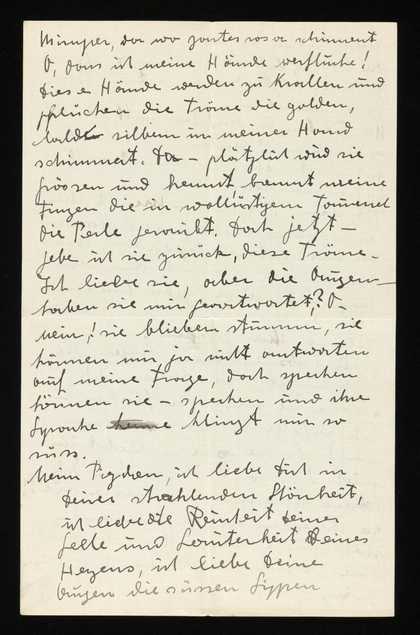 Wimper, da wo zartes rosa schimmert
O, dass ich meine Hände verfluche!
diese Hände werden zu Krallen und
pflücken die Träne die golden,
bald silbern in meiner Hand
schimmert. Da – plötzlich wird sie
grösser und brennt meine
Finger die in wollüstigem Taumel
die Perle geraubt. Doch jetzt –
gebe ich sie zurück, diese Träne.
Ich liebe sie, aber die Augen –
haben sie mir geantwortet? O –
nein! sie blieben stumm, sie
können mir ja nicht antworten
auf meine Frage, doch sprechen
können sie – sprechen und ihre
Sprache klingt mir so
süss.
Mein, ich liebe Dich in
deiner strahlenden Schönheit,
ich liebe die Reinheit deiner
Seele und Lauterkeit Deines
Herzens, ich liebe Deine
Augen die süssen Lippen